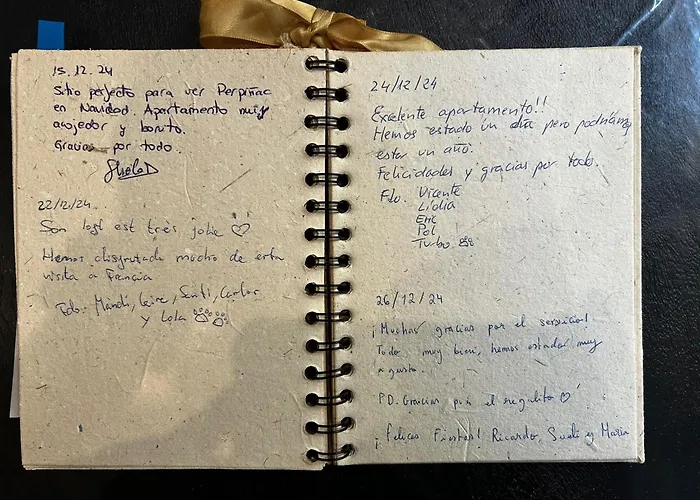 15.12.24
Sitio perfecto para ver Perpiñac
en Navidad. Apartamento muy
acojedor y bonito.
Gracias por todo.
22/12/24
Son loft est très jolie
Hemos disfrutado mucho de esta
visita a Francia
Fdo: Mandi, Leire, Santi, Carlos
y Lola
24/12/24
Excelente apartamento!!
Hemos estado un día pero podríamos
estar un año.
Felicidades y gracias por todo.
Fdo. Vicente
Lidia
Eric
Pol
Turbo
26/12/24
¡Muchas gracias por el servicio!
Todo muy bien, hemos estado muy
a gusto.
P.D. Gracias por el regalito
¡Felices Fiestas! Ricardo, Sueli y Maria